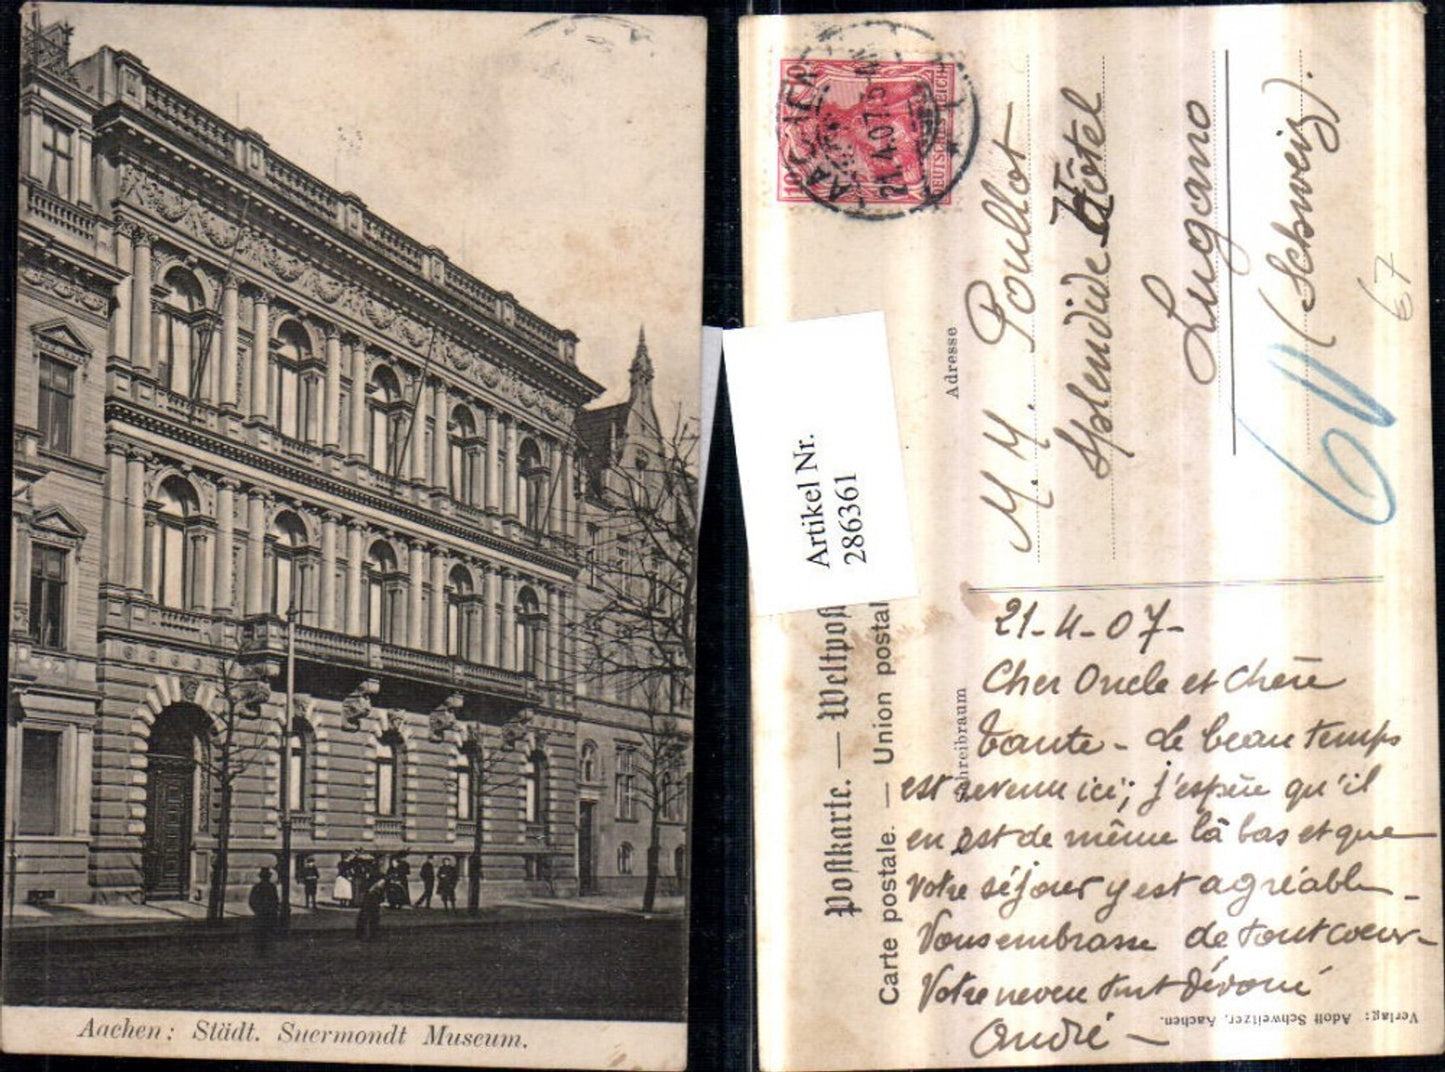 Aachen: Städt. Suermondt Museum.
AACHEN
21.4.07.5-
10
DEUTSCHES REICH
10
Artikel Nr.
286361
Postkarte. — Weltpost
Carte postale. — Union postal
Adresse
M. M. Poullot
Splendide Hôtel
Lugano
(Schweiz).
67
Schreibraum
21-4-07-
Cher Oncle et Chère
Tante - le beau temps
est revenu ici; j'espère qu'il
en est de même là bas et que
votre séjour y est agréable -
Vous embrasse de tout coeur -
Votre neveu tout dévoué
André -
Verlag: Adolf Schweitzer, Aachen.